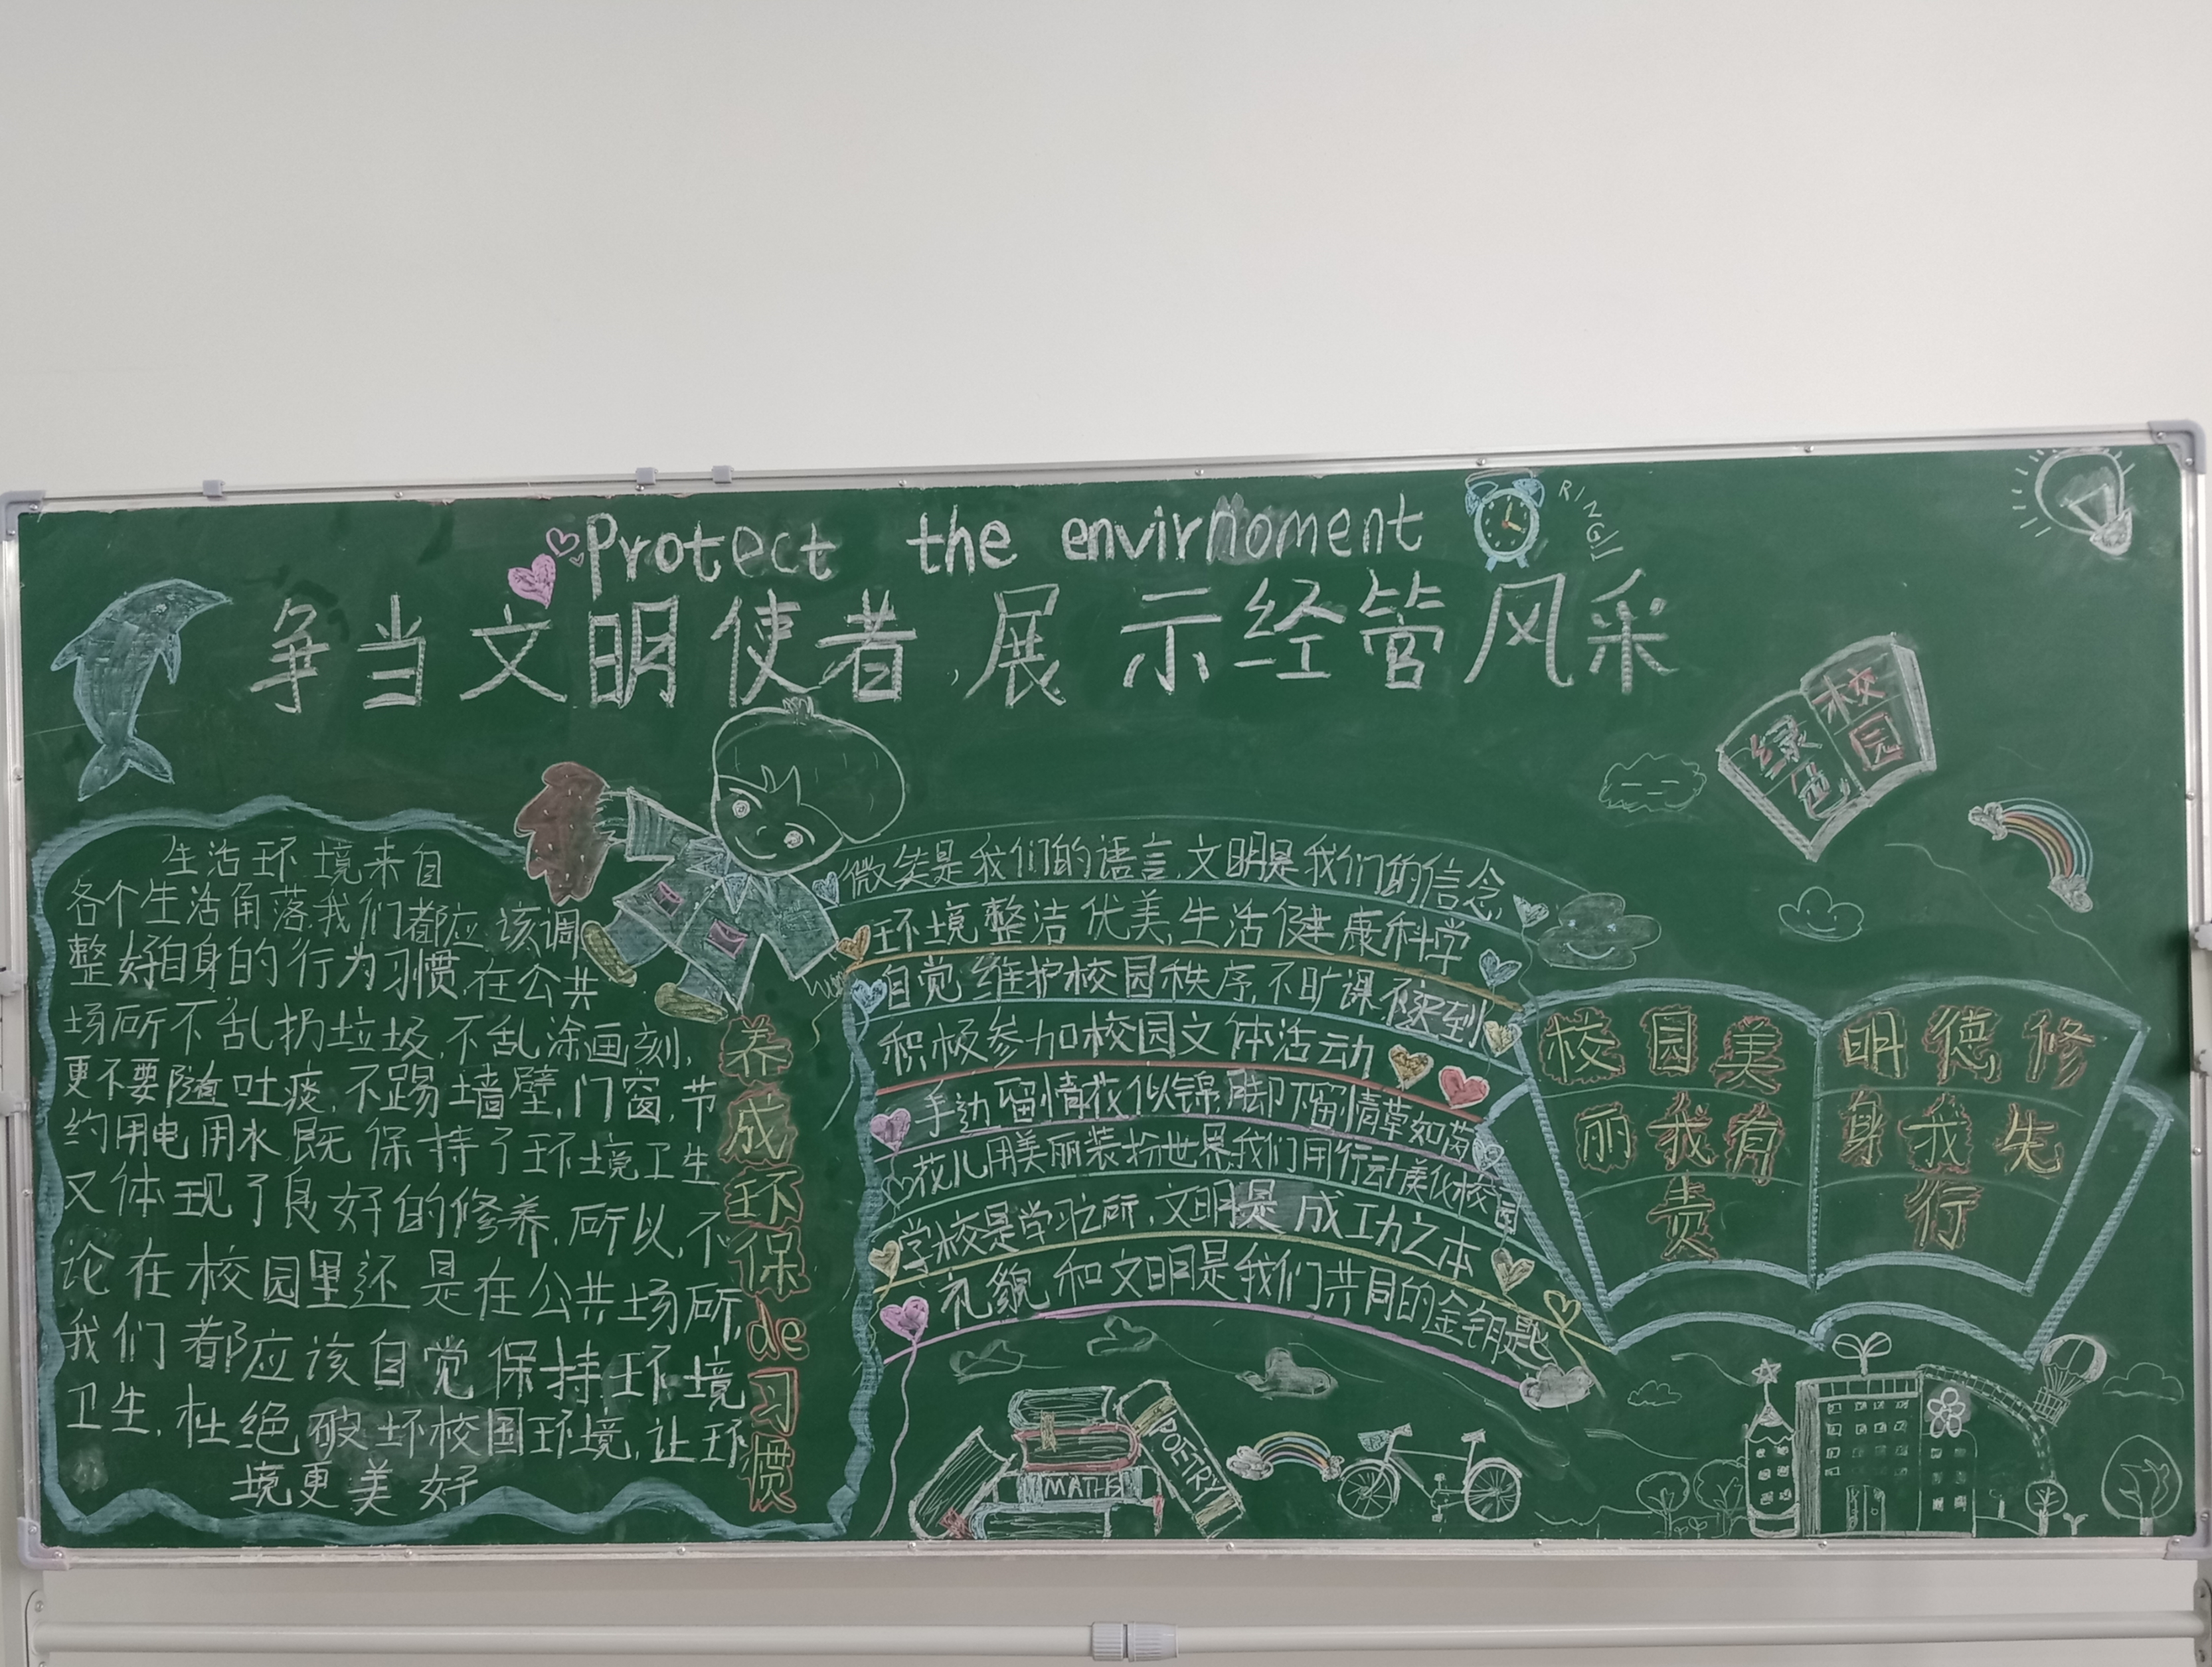 Protect the envirnoment
RING!!
争当文明使者,展示经管风采
绿色
校园
生活环境来自
各个生活角落,我们都应该调
整好自身的行为习惯,在公共
场所不乱扔垃圾,不乱涂画刻,
更不要随吐痰,不踢墙壁,门窗,节
约用电用水,既保持了环境卫生
又体现了良好的修养,所以,不
论在校园里还是在公共场所,
我们都应该自觉保持环境
卫生,杜绝破坏校园环境,让环
境更美好
养成环保de习惯
微笑是我们的语言,文明是我们的信念,
环境整洁优美,生活健康科学
自觉维护校园秩序,不旷课不迟到
积极参加校园文体活动
手边留情花似锦,脚下留情草如茵
花儿用美丽装扮世界,我们用行动美化校园
学校是学习之所,文明是成功之本
礼貌和文明是我们共同的金钥匙
校园美
丽我有
责
明德修
身我先
行
MATHS
POETRY